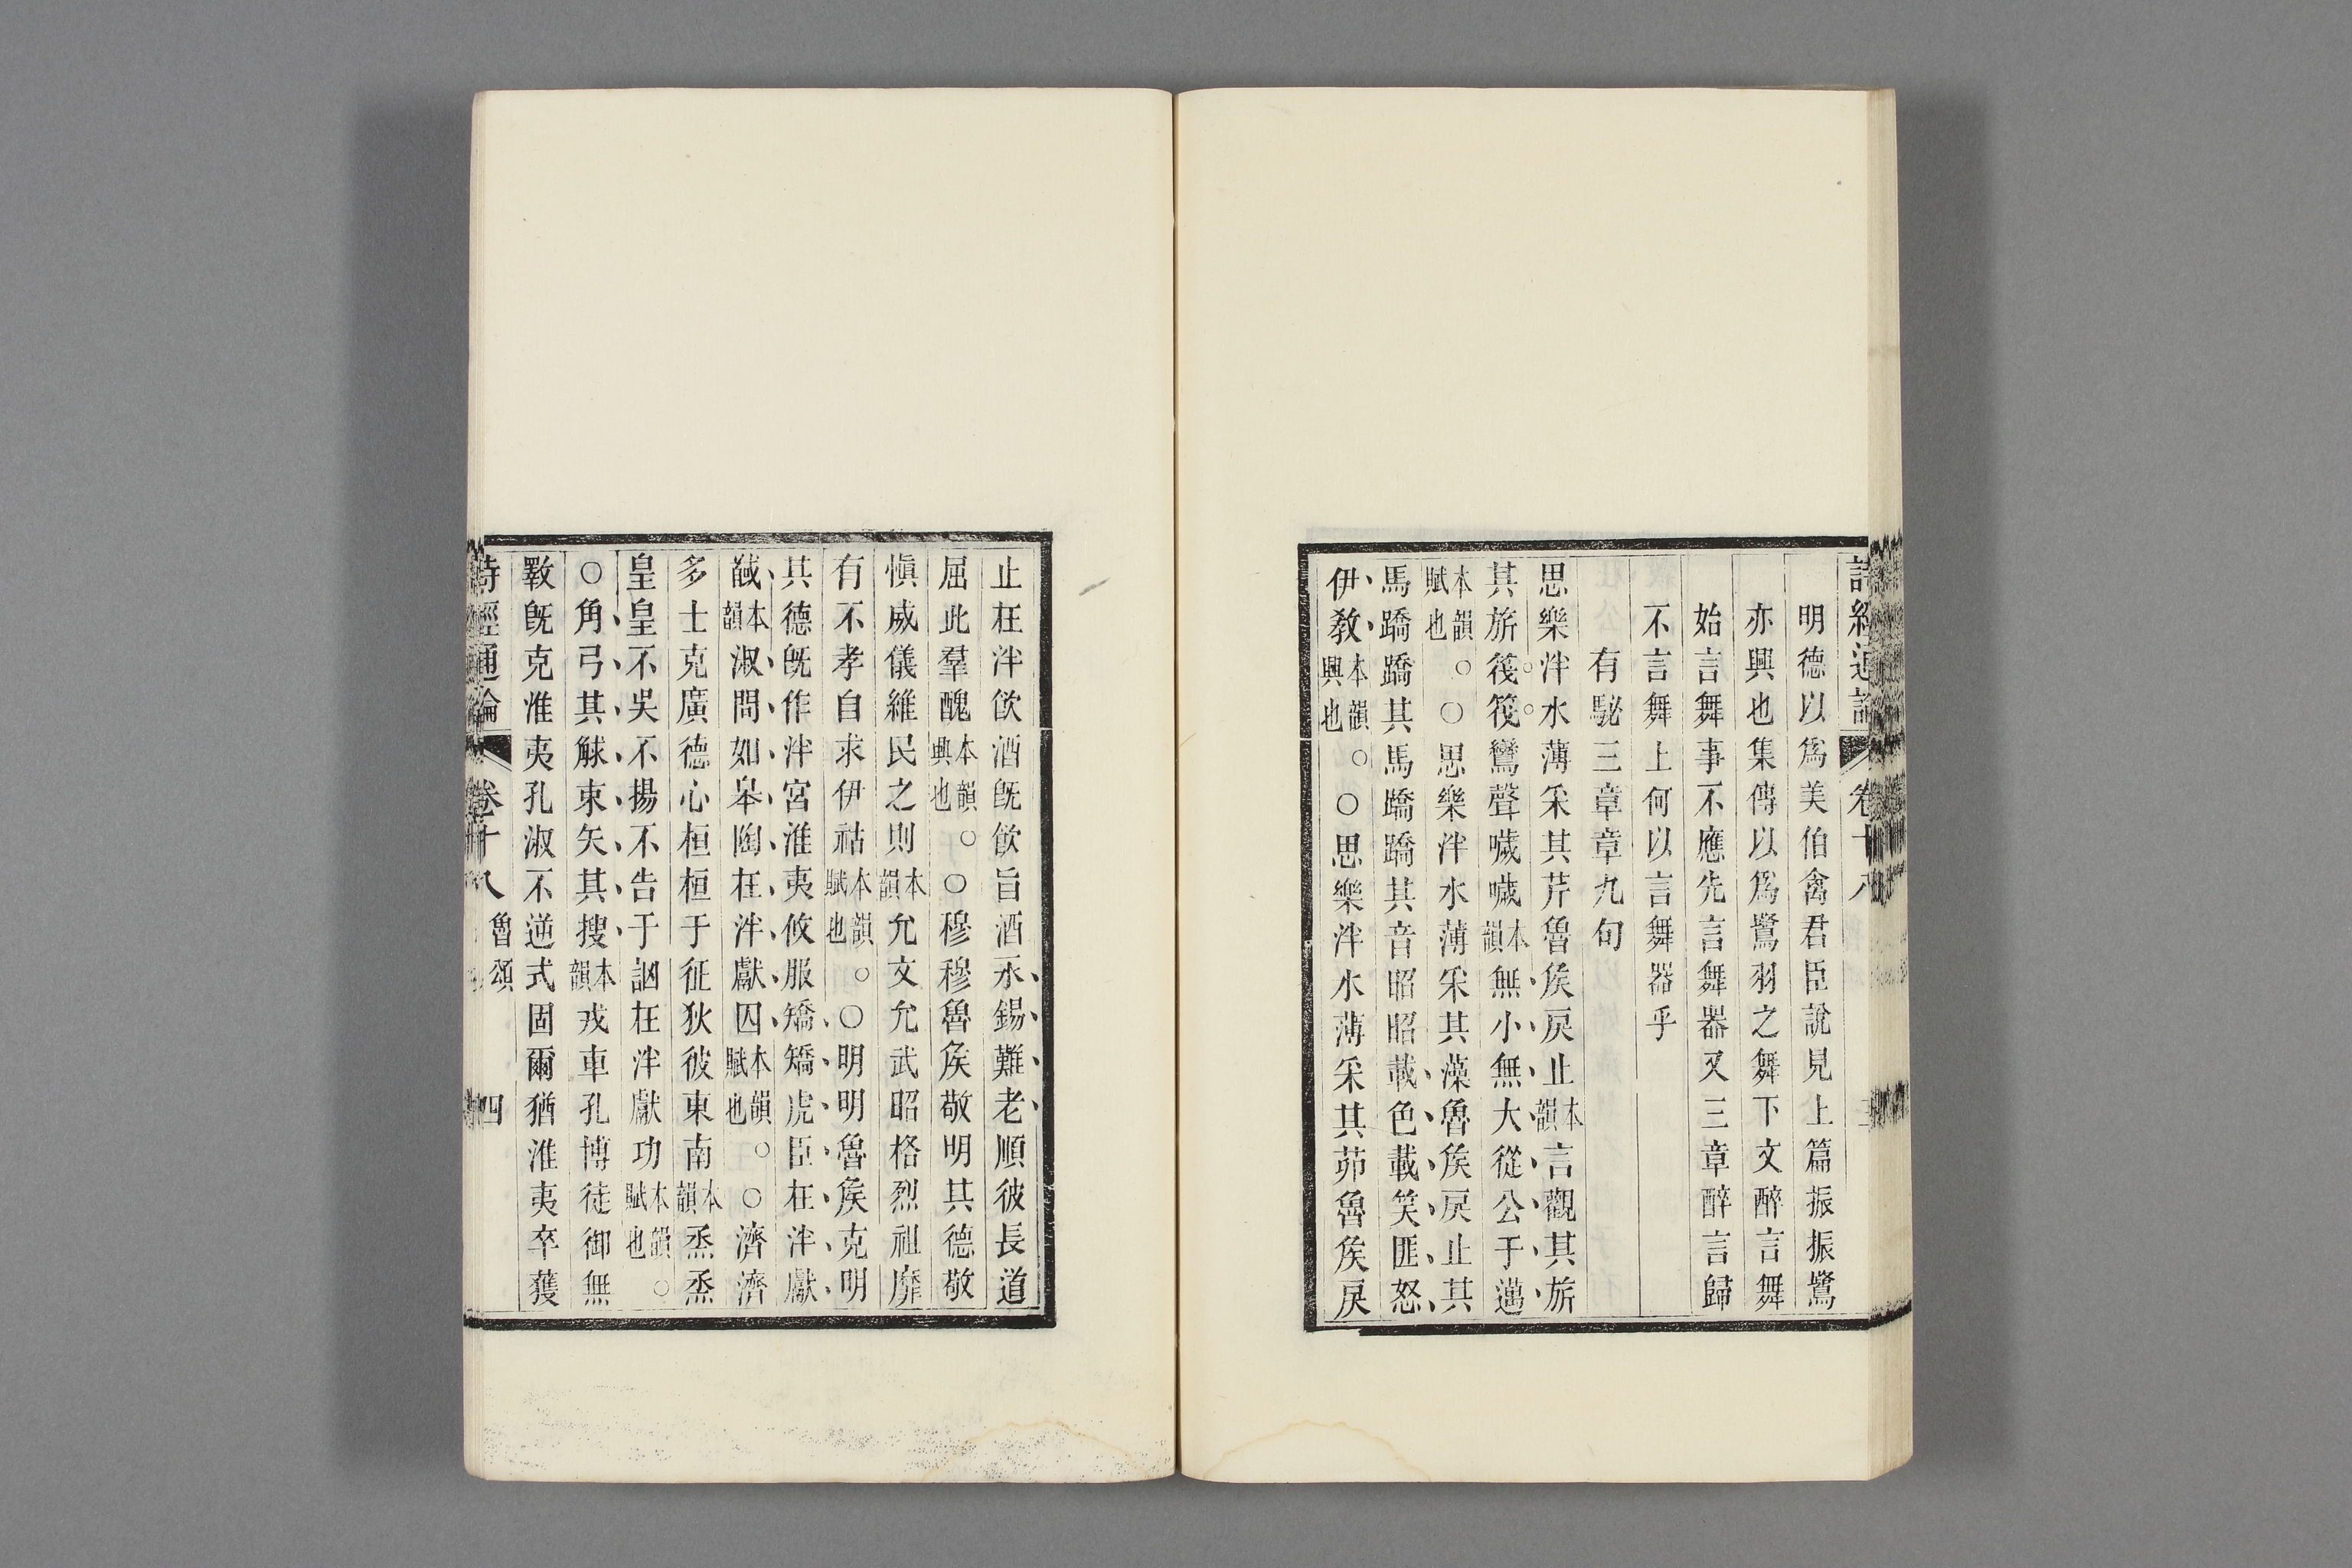 詩經通論 卷十八
明德以爲美伯禽君臣說見上篇振振鷺
亦興也集傳以爲鷺羽之舞下文醉言舞
始言舞事不應先言舞器又三章醉言歸
不言舞上何以言舞器乎
有駜三章章九句
思樂泮水薄采其芹魯矦戾止本韻言觀其旂
其旂筏筏鸞聲噦噦本韻無小無大從公于邁
本韻賦也○○思樂泮水薄采其藻魯矦戾止其
馬蹻蹻其馬蹻蹻其音昭昭載色載笑匪怒
伊敎本韻興也○○思樂泮水薄采其茆魯矦戾
止在泮飮酒旣飮旨酒永錫難老順彼長道
屈此羣醜本韻興也○○穆穆魯矦敬明其德敬
愼威儀維民之則本韻允文允武昭格烈祖靡
有不孝自求伊祜本韻賦也○○明明魯矦克明
其德旣作泮宮淮夷攸服矯矯虎臣在泮獻
馘本韻淑問如皋陶在泮獻囚本韻賦也○○濟濟
多士克廣德心桓桓于征狄彼東南本韻烝烝
皇皇不吳不揚不告于訩在泮獻功本韻賦也○
○角弓其觩束矢其搜本韻戎車孔博徒御無
斁旣克淮夷孔淑不逆式固爾猶淮夷卒獲
詩經通論 卷十八 魯頌 四